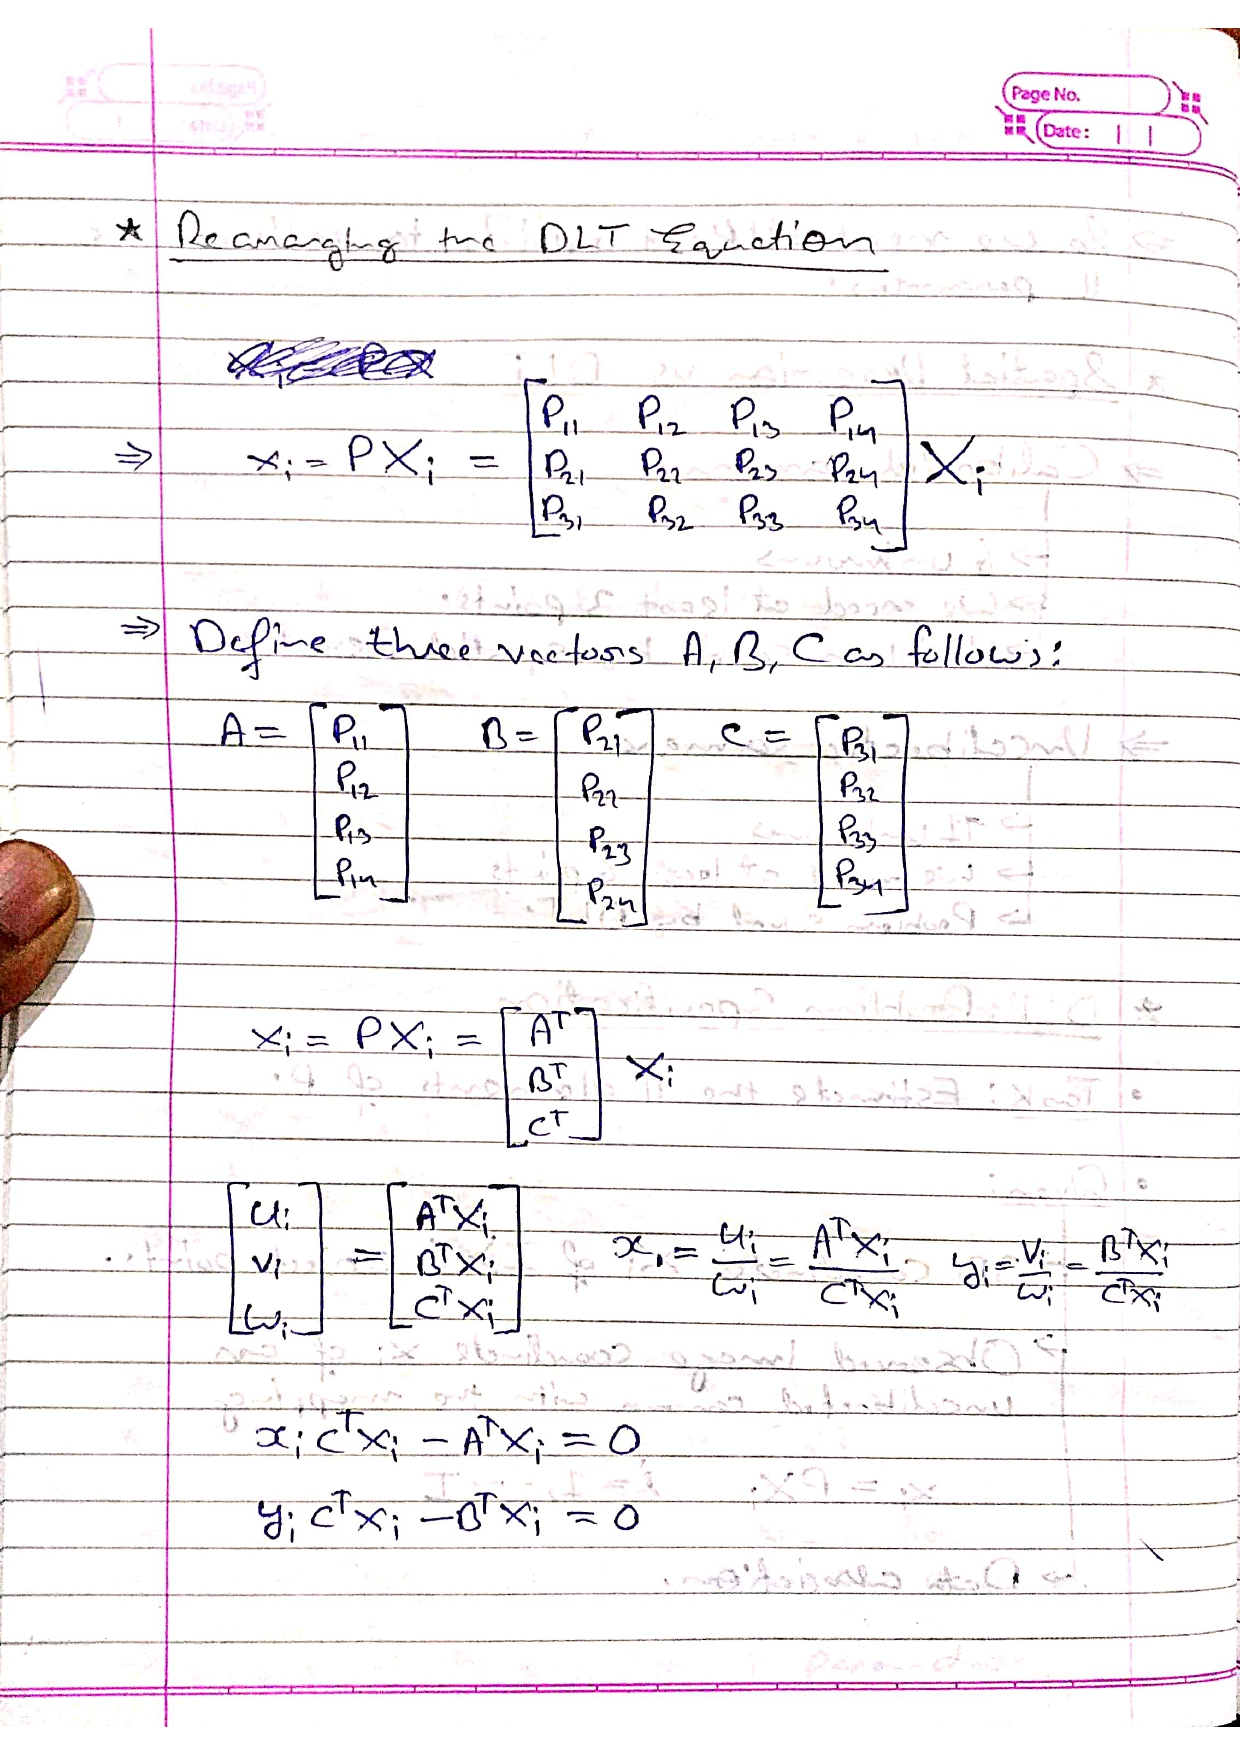 Page No.
Date:
* Rearranging the DLT Equation
⇒ xᵢ = PXᵢ = [P₁₁ P₁₂ P₁₃ P₁₄
P₂₁ P₂₂ P₂₃ P₂₄
P₃₁ P₃₂ P₃₃ P₃₄] Xᵢ
⇒ Define three vectors A, B, C as follows:
A = [P₁₁ P₁₂ P₁₃ P₁₄] B = [P₂₁ P₂₂ P₂₃ P₂₄] C = [P₃₁ P₃₂ P₃₃ P₃₄]
xᵢ = PXᵢ = [Aᵀ
Bᵀ
Cᵀ] Xᵢ
[uᵢ vᵢ wᵢ] = [AᵀXᵢ BᵀXᵢ CᵀXᵢ] xᵢ = uᵢ/wᵢ = AᵀXᵢ/CᵀXᵢ yᵢ = vᵢ/wᵢ = BᵀXᵢ/CᵀXᵢ
xᵢ CᵀXᵢ − AᵀXᵢ = 0
yᵢ CᵀXᵢ − BᵀXᵢ = 0